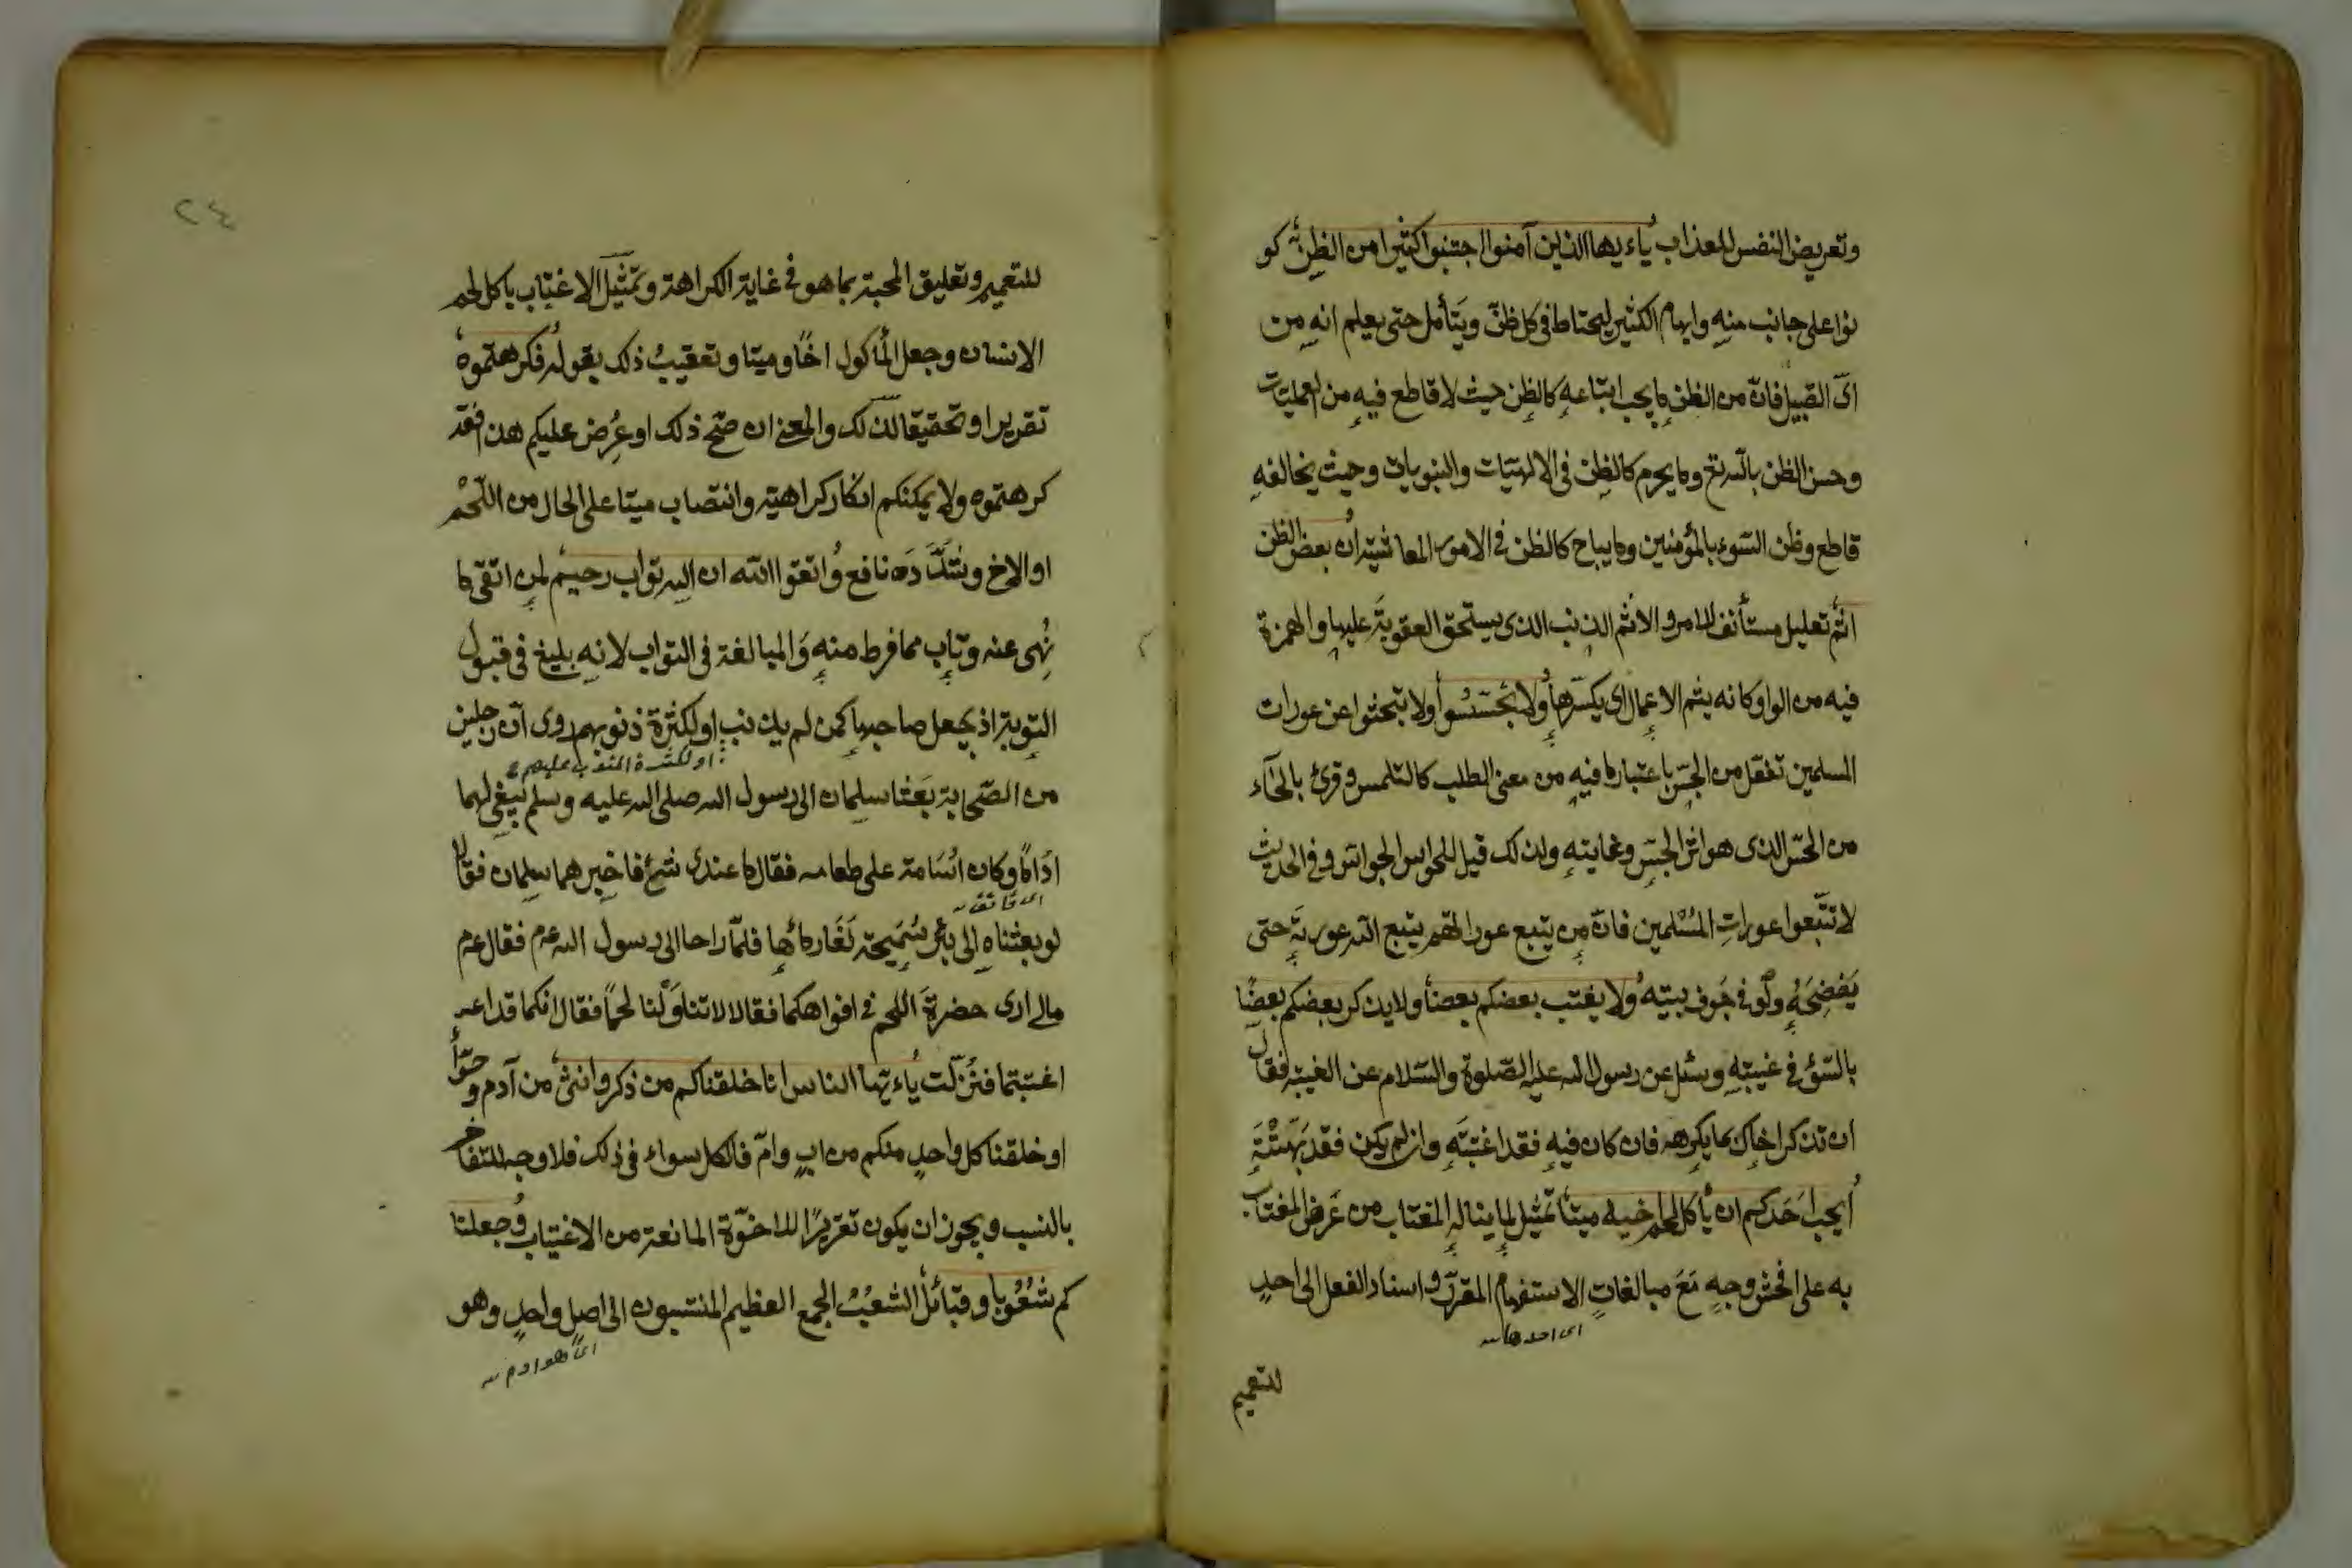 وتعريض النفس للعذاب ياءيها الذين آمنوا اجتنبوا كثيرا من الظن كو
نوا على جانب منه وابهام الكثير ليحتاط في كل ظن ويتأمل حتى يعلم انه من
اى القبيل فان من الظن ما يجب اتباعه كالظن حيث لا قاطع فيه من العمليات
وحسن الظن بالله تع وما يحرم كالظن في الالهيات والنبويات وحيث يخالفه
قاطع وظن السوء بالمؤمنين وما يباح كالظن في الامور المعاشية ان بعض الظن
اثم تعليل مستأنف للامر والاثم الذنب الذى يستحق العقوبة عليها والهمزة
فيه من الواو كانه يثم الاعمال اى يكسرها ولا تجسسوا ولا تبحثوا عن عورات
المسلمين تفعل من الجس باعتبار ما فيه من معنى الطلب كالتلمس وقرئ بالحآء
من الحس الذى هو اثر الجس وغايته ولذلك قيل للحواس الجواس وفي الحديث
لا تتبعوا عورات المسلمين فان من يتبع عوراتهم يتبع الله عورته حتى
يفضحه ولو في جوف بيته ولا يغتب بعضكم بعضا ولا يذكر بعضكم بعضا
بالسؤ في غيبته وسئل عن رسول الله عليه الصلوة والسلام عن الغيبة فقال
ان تذكر اخاك بما يكرهه فان كان فيه فقد اغتبته وان لم يكن فقد بهتته
أيحب احدكم ان يأكل لحم اخيه ميتا تمثيل لما يناله المغتاب من عرض المغتاب
به على افحش وجه مع مبالغات الاستفهام المقرر واسناد الفعل الى احد
اى احدها
للتعميم
٢٤
للتعميم وتعليق المحبة بما هو في غاية الكراهة وتمثيل الاغتياب باكل لحم
الانسان وجعل المأكول اخا وميتا وتعقيب ذلك بقوله فكرهتموه
تقريرا وتحقيقا لذلك والمعنى ان صح ذلك او عرض عليكم هذا فقد
كرهتموه ولا يمكنكم انكار كراهيته وانتصاب ميتا على الحال من اللحم
او الاخ وشدده نافع واتقوا الله ان الله تواب رحيم لمن اتقى ما
نهى عنه وتاب مما فرط منه والمبالغة في التواب لانه بليغ في قبول
التوبة اذ يجعل صاحبها كمن لم يذنب او لكثرة ذنوبهم روى ان رجلين
او لكثرة المتوب عليهم
من الصحابة بعثا سلمان الى رسول الله صلى الله عليه وسلم يبغى لهما
اداما وكان اسامة على طعامه فقال ما عندى شئ فاخبرهما سلمان فقالا
لو بعثناه الى بئر سميحة لغار ماؤها فلما راحا الى رسول الله عم فقال عم
مالى ارى حضرة اللحم في افواهكما فقالا لا تناولنا لحما فقال انكما قد
اغتبتما فنزلت ياءيها الناس انا خلقناكم من ذكر وانثى من آدم وحوا
او خلقنا كل واحد منكم من اب وام فالكل سواء في ذلك فلا وجه للتفاخر
بالنسب ويجوز ان يكون تعزيرا للاخوة المانعة من الاغتياب وجعلنا
كم شعوبا وقبائل الشعب الجمع العظيم المنتسبون الى اصل واحد وهو
اى هو ادم